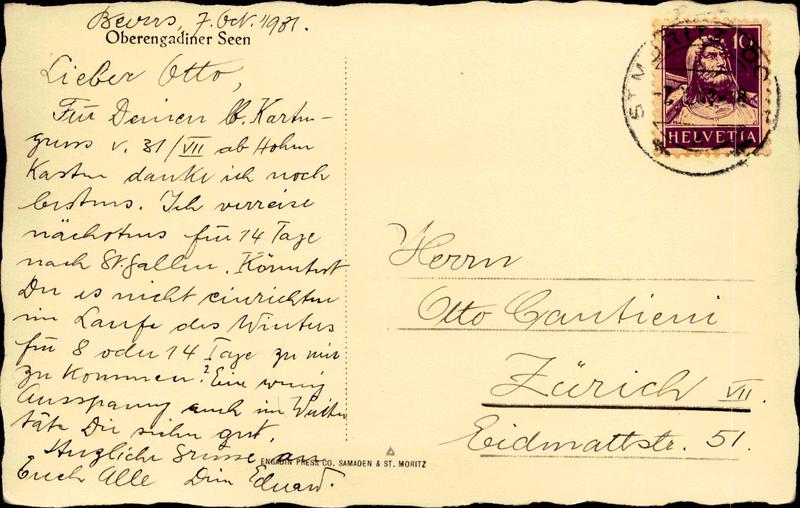 Bevers, 7. Oct. 1931.
Oberengadiner Seen
Lieber Otto,
Für Deinen lb. Karten-
gruss v. 31/VII ab Hohen
Kasten danke ich noch
bestens. Ich verreise
nächstens für 14 Tage
nach St. Gallen. Könntest
Du es nicht einrichten
im Laufe des Winters
für 8 oder 14 Tage zu mir
zu kommen? Eine wenig
Ausspannung auch im Winter
täte Dir sicher gut.
Herzliche Grüsse an
Euch Alle Dein Eduard.
ENGADIN PRESS CO. SAMADEN & ST. MORITZ
10
HELVETIA
ST. MORITZ
Herrn
Otto Cantieni
Zürich VII.
Eidmattstr. 51.